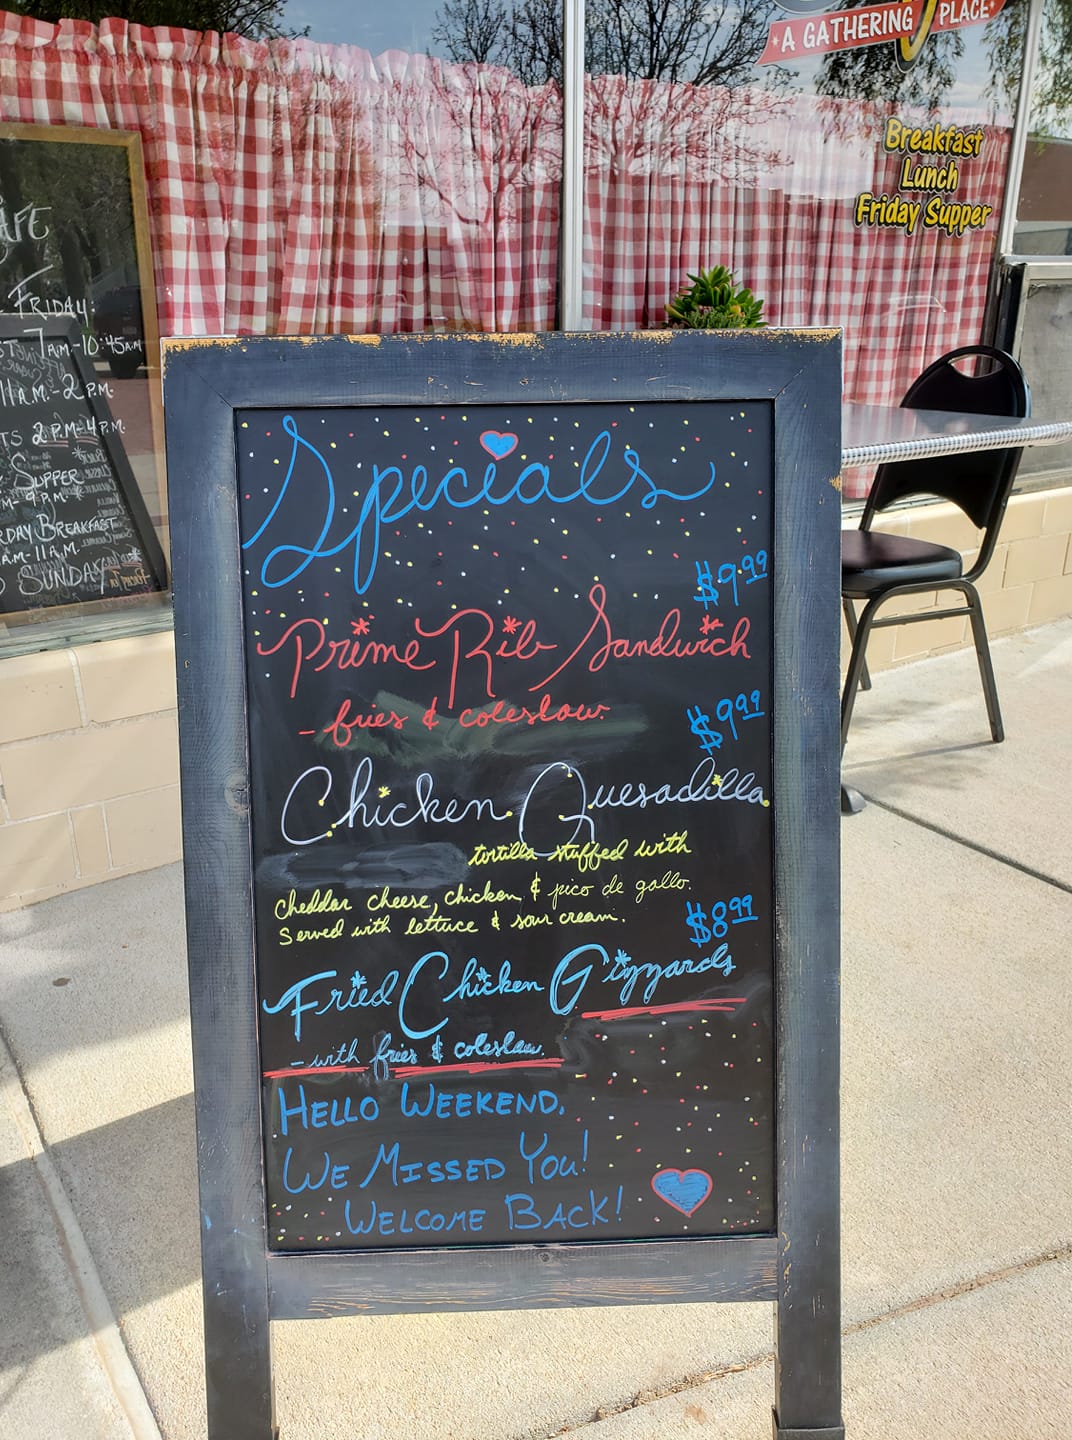 A GATHERING PLACE
Breakfast
Lunch
Friday Supper
FRIDAY:
7 A.M.-10:45 A.M
11 A.M.-2 P.M.
2 P.M-4 P.M.
SUPPER
9 P.M
BREAKFAST
A.M.-11 A.M.
SUNDAY
Specials
$9.99
Prime Rib Sandwich
- fries & coleslaw.
$9.99
Chicken Quesadilla
tortilla stuffed with
cheddar cheese, chicken & pico de gallo.
Served with lettuce & sour cream.
$8.99
Fried Chicken Gizzards
- with fries & coleslaw.
HELLO WEEKEND.
WE MISSED YOU!
WELCOME BACK!